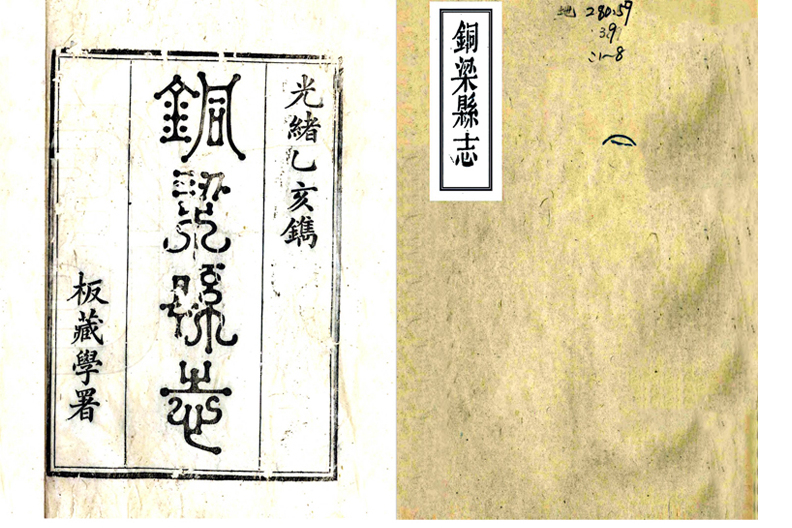 光緒乙亥鐫
銅梁縣志
板藏學署
銅梁縣志
地 280.59
3.9
:1~8